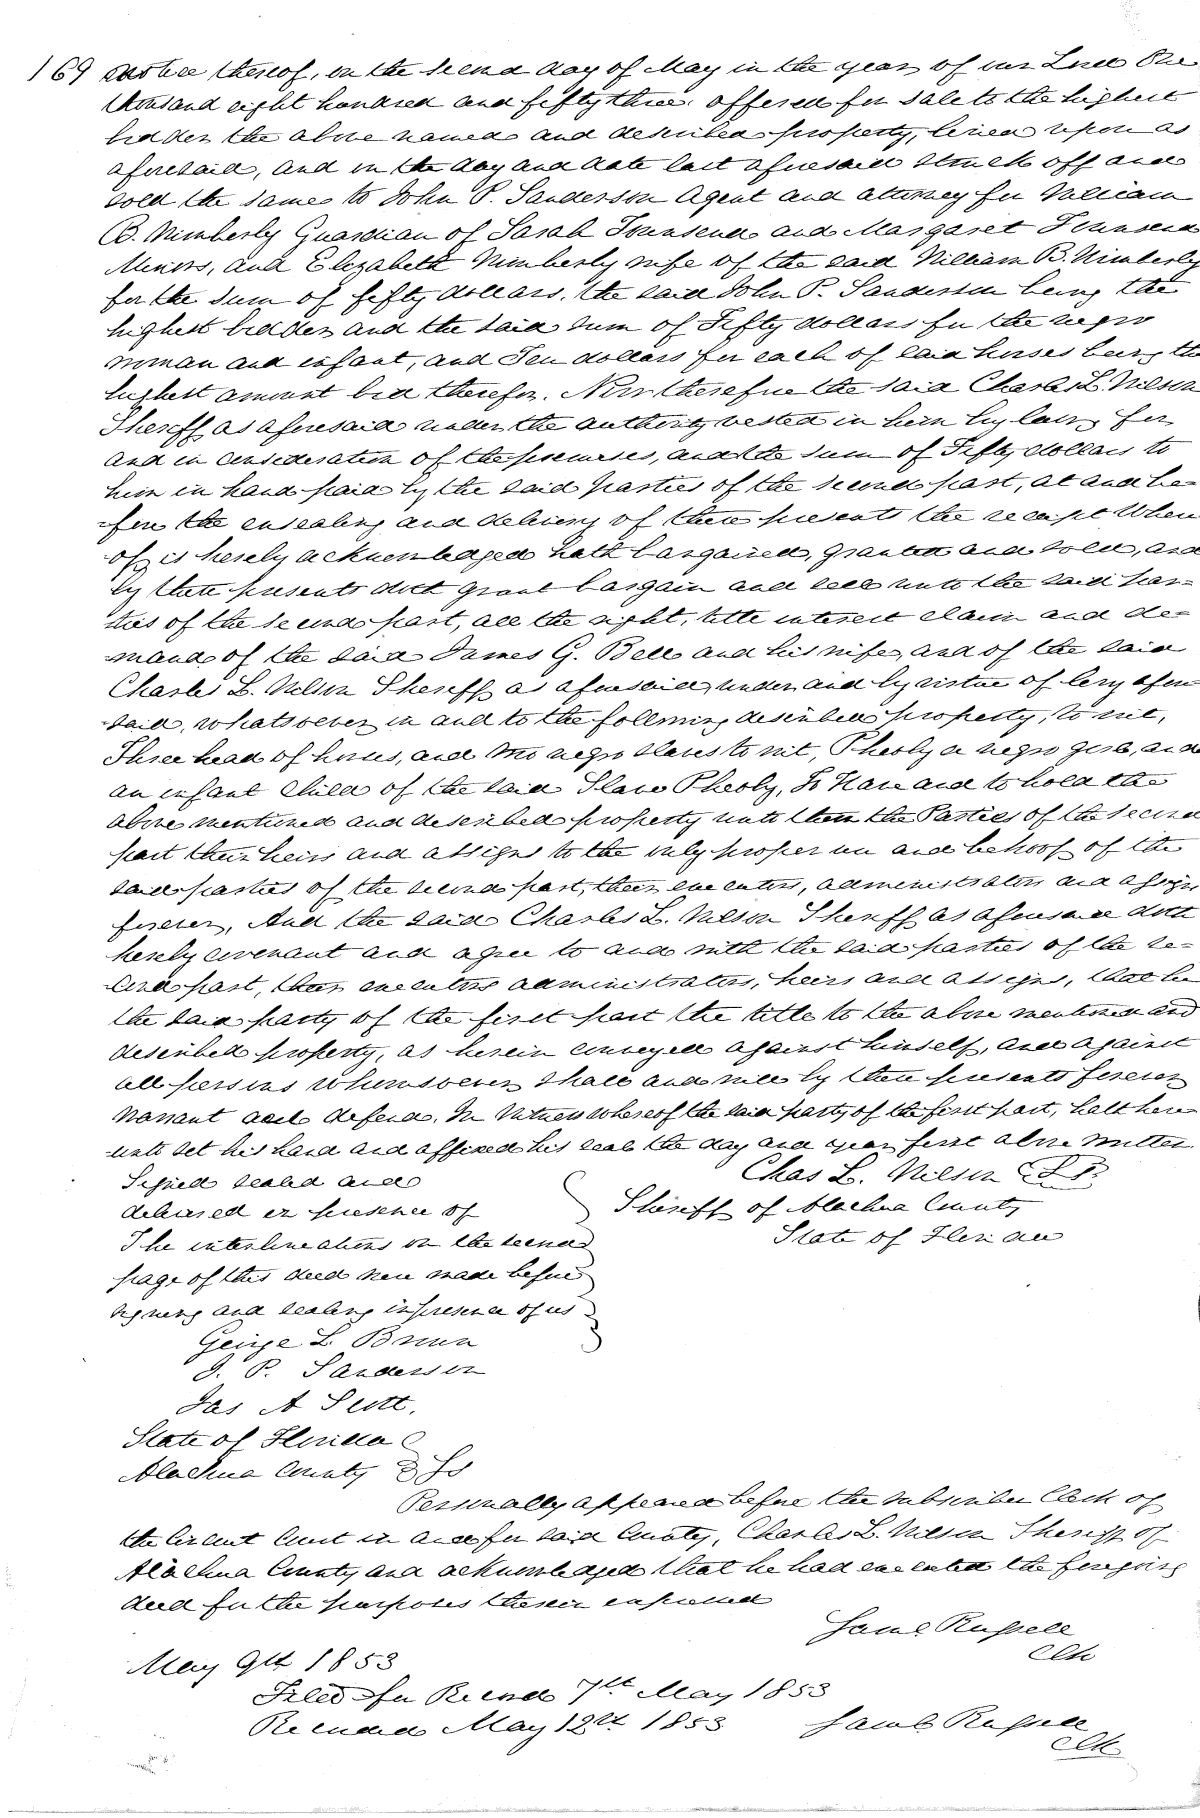 169 notice thereof, on the second day of May in the year of our Lord One
thousand eight hundred and fifty three, offered for sale to the highest
bidder the above named and described property, levied upon as
aforesaid, and on the day and date last aforesaid struck off and
sold the same to John P. Sanderson Agent and attorney for William
B. Wimberly Guardian of Sarah Townsend and Margaret Townsend
Minors, and Elizabeth Wimberly wife of the said William B. Wimberly
for the sum of fifty dollars, the said John P. Sanderson being the
highest bidder and the said sum of Fifty dollars for the negro
woman and infant, and Ten dollars for each of said horses being the
highest amount bid therefor. Now therefore the said Charles L. Wilson
Sheriff as aforesaid under the authority vested in him by law, for
and in consideration of the premises, and the sum of Fifty dollars to
him in hand paid by the said parties of the second part, at and be-
-fore the ensealing and delivery of these presents the receipt Where
of is hereby acknowledged hath bargained, granted and sold, and
by these presents doth grant bargain and sell unto the said par-
ties of the second part, all the right, title interest claim and de-
-mand of the said James G. Bell and his wife, and of the said
Charles L. Wilson Sheriff as aforesaid, under and by virtue of levy afore
-said, whatsoever in and to the following described property, to wit,
Three head of horses, and two negro slaves to wit, Pheoby a negro girl, and
an infant child of the said Slave Pheoby, To Have and to hold the
above mentioned and described property unto them the Parties of the second
part their heirs and assigns to the only proper use and behoof of the
said parties of the second part, their executors, administrators and assigns
forever, And the said Charles L. Wilson Sheriff as aforesaid doth
hereby covenant and agree to and with the said parties of the se-
-cond part, their executors administrators, heirs and assigns, that he
the said party of the first part the title to the above mentioned and
described property, as herein conveyed against himself, and against
all persons whomsoever shall and will by these presents forever
warrant and defend. In Witness whereof the said party of the first part, hath here
-unto set his hand and affixed his seal the day and year first above written
Signed sealed and Chas L. Wilson L.S.
delivered in presence of Sheriff of Alachua County
The interlineations on the second State of Florida
page of this deed were made before
signing and sealing in presence of us
George L Brown
J. P. Sanderson
Jas A Scott.
State of Florida
Alachua County Ss
Personally appeared before the subscriber Clerk of
the Circuit Court in and for said County, Charles L. Wilson Sheriff of
Alachua County and acknowledged that he had executed the foregoing
deed for the purposes therein expressed
Saml Russell
Clk
May 9th 1853
Filed for Record 7th May 1853
Recorded May 12th 1853 Saml Russell
Clk